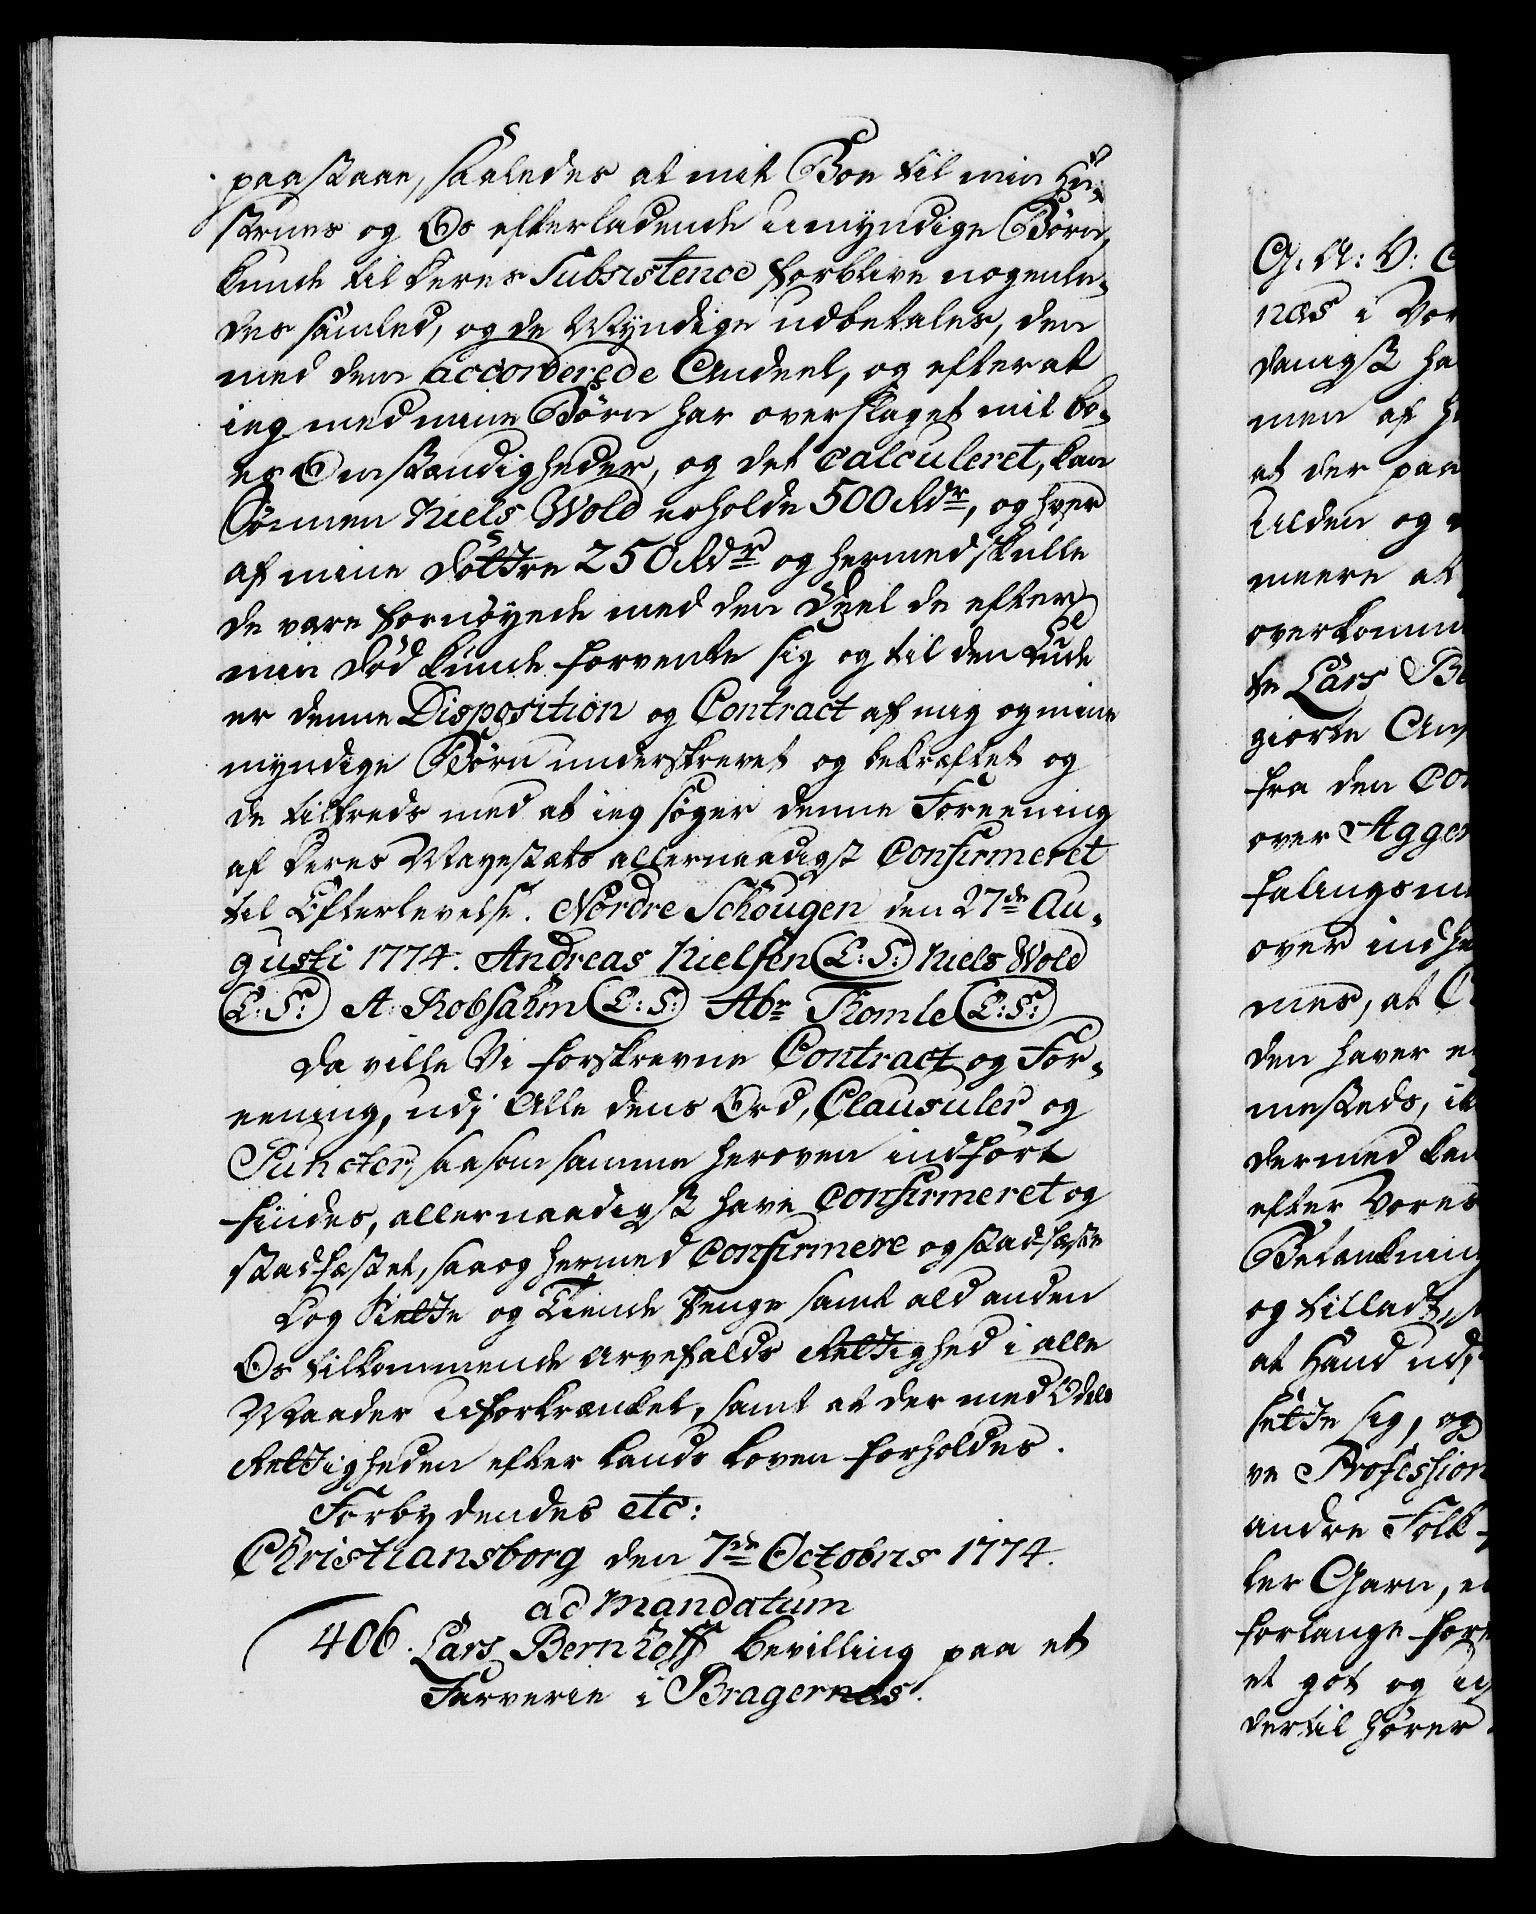 paastaae, saaledes at mit Boe til min Hu-
strues og Os efterladende umyndige Børn,
kunde til deres Subsistence forblive nogenle-
des samled, og de Myndige udbetales, den
med dem accorderede Andeel, og efter at
ieg med mine Børn har overslaget mit Bo-
es Omstændigheder, og det calculeret, kan
Sønnen Niels Wold erholde 500 Rdr, og hver
af mine Døttre 250 Rdr og hermed skulle
de være fornøyede med den Deel de efter
min Død kunde forvente sig og til den Ende
er denne Disposition og Contract af mig og mine
myndige Børn underskrevet og bekræftet og
de tilfreds med at ieg søger denne Foreening
af Deres Mayestæts allernaadigst Confirmeret
til Efterlevelse. Nordre Schougen den 27de Au-
gusti 1774. Andreas Nielsen (L:S:) Niels Wold
(L:S:) A. Robsahm (L:S:) Abr Thomle (L:S:)
Da ville Vi forskrevne Contract og For-
eening, udj Alle dens Ord, Clausuler og
Puncter, saasom samme heroven indført
findes, allernaadigst have Confirmeret og
stadfæstet, saa og hermed Confirmere og stadfæste
Dog Siette og Tiende Penge samt ald anden
Os tilkommende Arvefalds Rettighed i alle
Maader uforkrænket, samt at der med Odels
Rettigheden efter Lands Loven forholdes.
Forbydendes etc:
Christiansborg den 7de Octobris 1774.
ad mandatum
406. Lars Bernhoff Bevilling paa et
Farverie i Bragernæs.
G: A: V:
næs i Vor
danigst ha
men af
at der paa
Alden og
meere at
overkomme
te Lars Be
giorte An
fra den Co
over Agger
falingsm
over indhe
mes, at
den haver
mesteds, ik
dermed kan
efter Vores
Betænkning
og tilladt,
at Hand udj
sette sig, og
ve Profession
andre Folk
ler Garn, e
forlange for
et got og
dertil hører